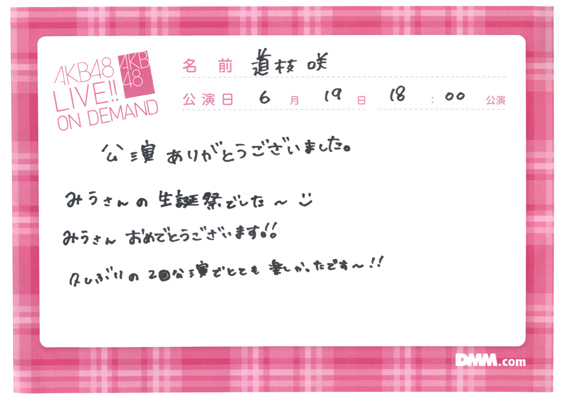 AKB48
LIVE!!
ON DEMAND
AKB
48
名前 道枝咲
公演日 6月19日 18:00公演
公演ありがとうございました。
みうさんの生誕祭でした～
みうさんおめでとうございます!!
久しぶりの2回公演でとても楽しかったです～!!
DMM.com